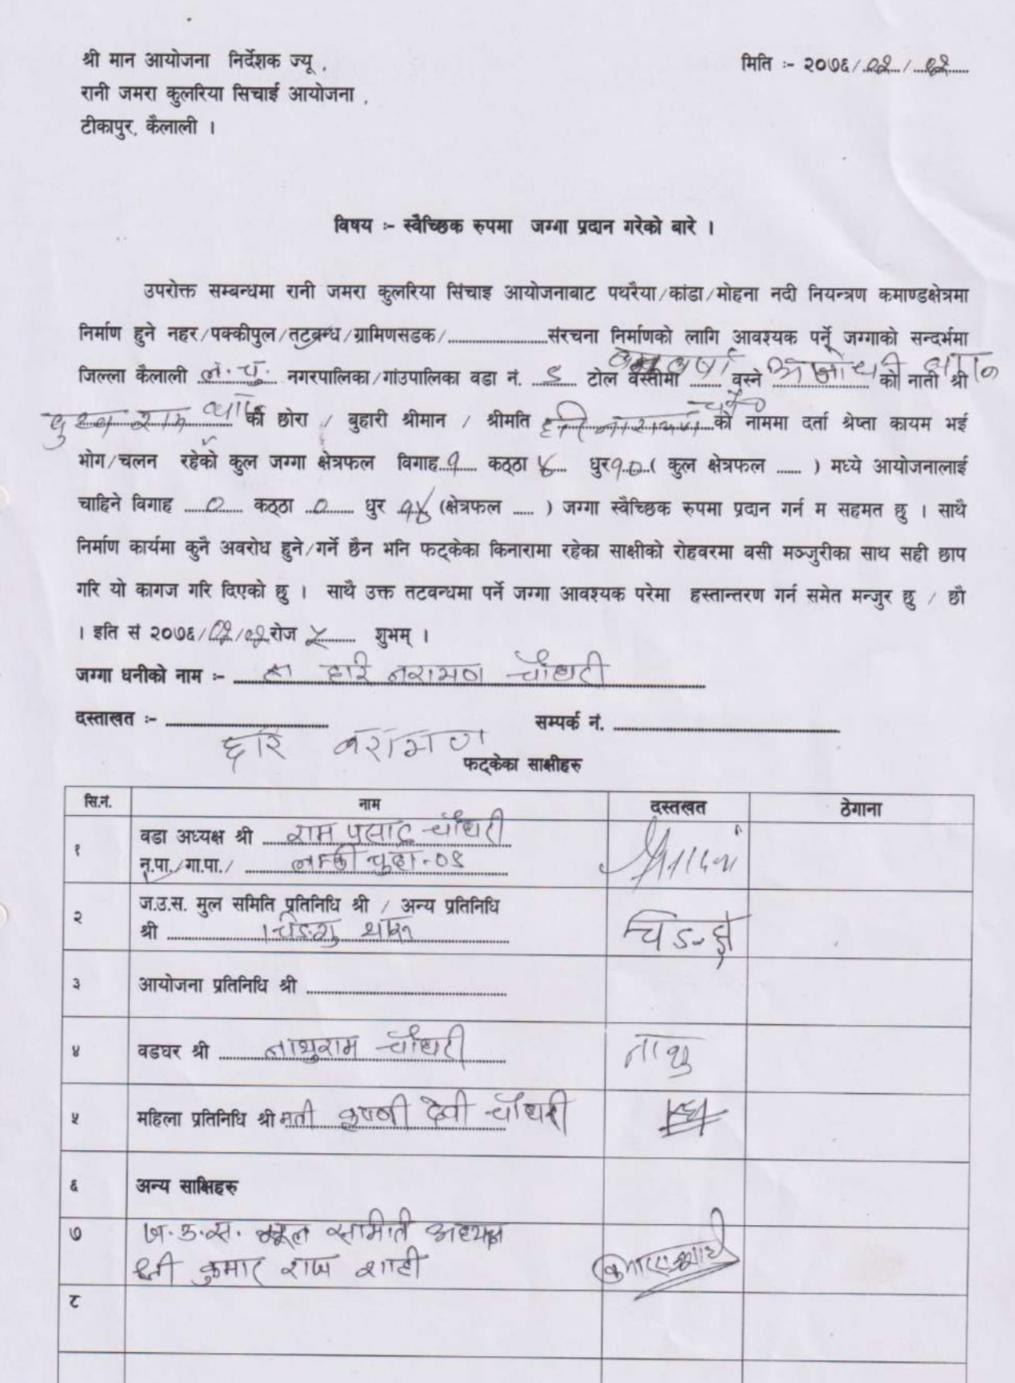 श्री मान आयोजना निर्देशक ज्यू ,
मिति :- २०७६/०२/१२
रानी जमरा कुलरिया सिचाई आयोजना ,
टीकापुर, कैलाली ।
विषय :- स्वैच्छिक रुपमा जग्गा प्रदान गरेको बारे ।
उपरोक्त सम्बन्धमा रानी जमरा कुलरिया सिंचाइ आयोजनाबाट पथरैया/कांडा/मोहना नदी नियन्त्रण कमाण्डक्षेत्रमा
निर्माण हुने नहर/पक्कीपुल/तटबन्ध/ग्रामिणसडक/....................संरचना निर्माणको लागि आवश्यक पर्ने जग्गाको सन्दर्भमा
जिल्ला कैलाली ल.चु. नगरपालिका/गांउपालिका वडा नं. ९ टोल वस्तीमा ...... वस्ने को नाती श्री
राम को छोरा / बुहारी श्रीमान / श्रीमति हरि नारायण को नाममा दर्ता श्रेष्ता कायम भई
भोग/चलन रहेको कुल जग्गा क्षेत्रफल विगाह १ कठ्ठा ४ धुर १०( कुल क्षेत्रफल ...... ) मध्ये आयोजनालाई
चाहिने विगाह ० कठ्ठा ० धुर १४ (क्षेत्रफल ..... ) जग्गा स्वैच्छिक रुपमा प्रदान गर्न म सहमत छु । साथै
निर्माण कार्यमा कुनै अवरोध हुने/गर्ने छैन भनि फट्केका किनारामा रहेका साक्षीको रोहवरमा बसी मञ्जुरीका साथ सही छाप
गरि यो कागज गरि दिएको छु । साथै उक्त तटवन्धमा पर्ने जग्गा आवश्यक परेमा हस्तान्तरण गर्न समेत मन्जुर छु / छौ
। इति सं २०७६/०२/१२ रोज शुभम् ।
जग्गा धनीको नाम :- हरि नरायण चौधरी
दस्ताखत :- सम्पर्क नं.
हरि नरायण
फट्केका साक्षीहरु
सि.नं. नाम दस्तखत ठेगाना
१ वडा अध्यक्ष श्री राम प्रसाद चौधरी
न.पा./गा.पा./ लम्की चुहा-०९
२ ज.उ.स. मुल समिति प्रतिनिधि श्री / अन्य प्रतिनिधि
श्री थारु
३ आयोजना प्रतिनिधि श्री
४ वडघर श्री नाथुराम चौधरी नाथु
५ महिला प्रतिनिधि श्री मती कृष्णी देवी चौधरी
६ अन्य साक्षिहरु
७ ज.उ.स. मूल समिति अध्यक्ष
श्री कुमार राज शाही
८